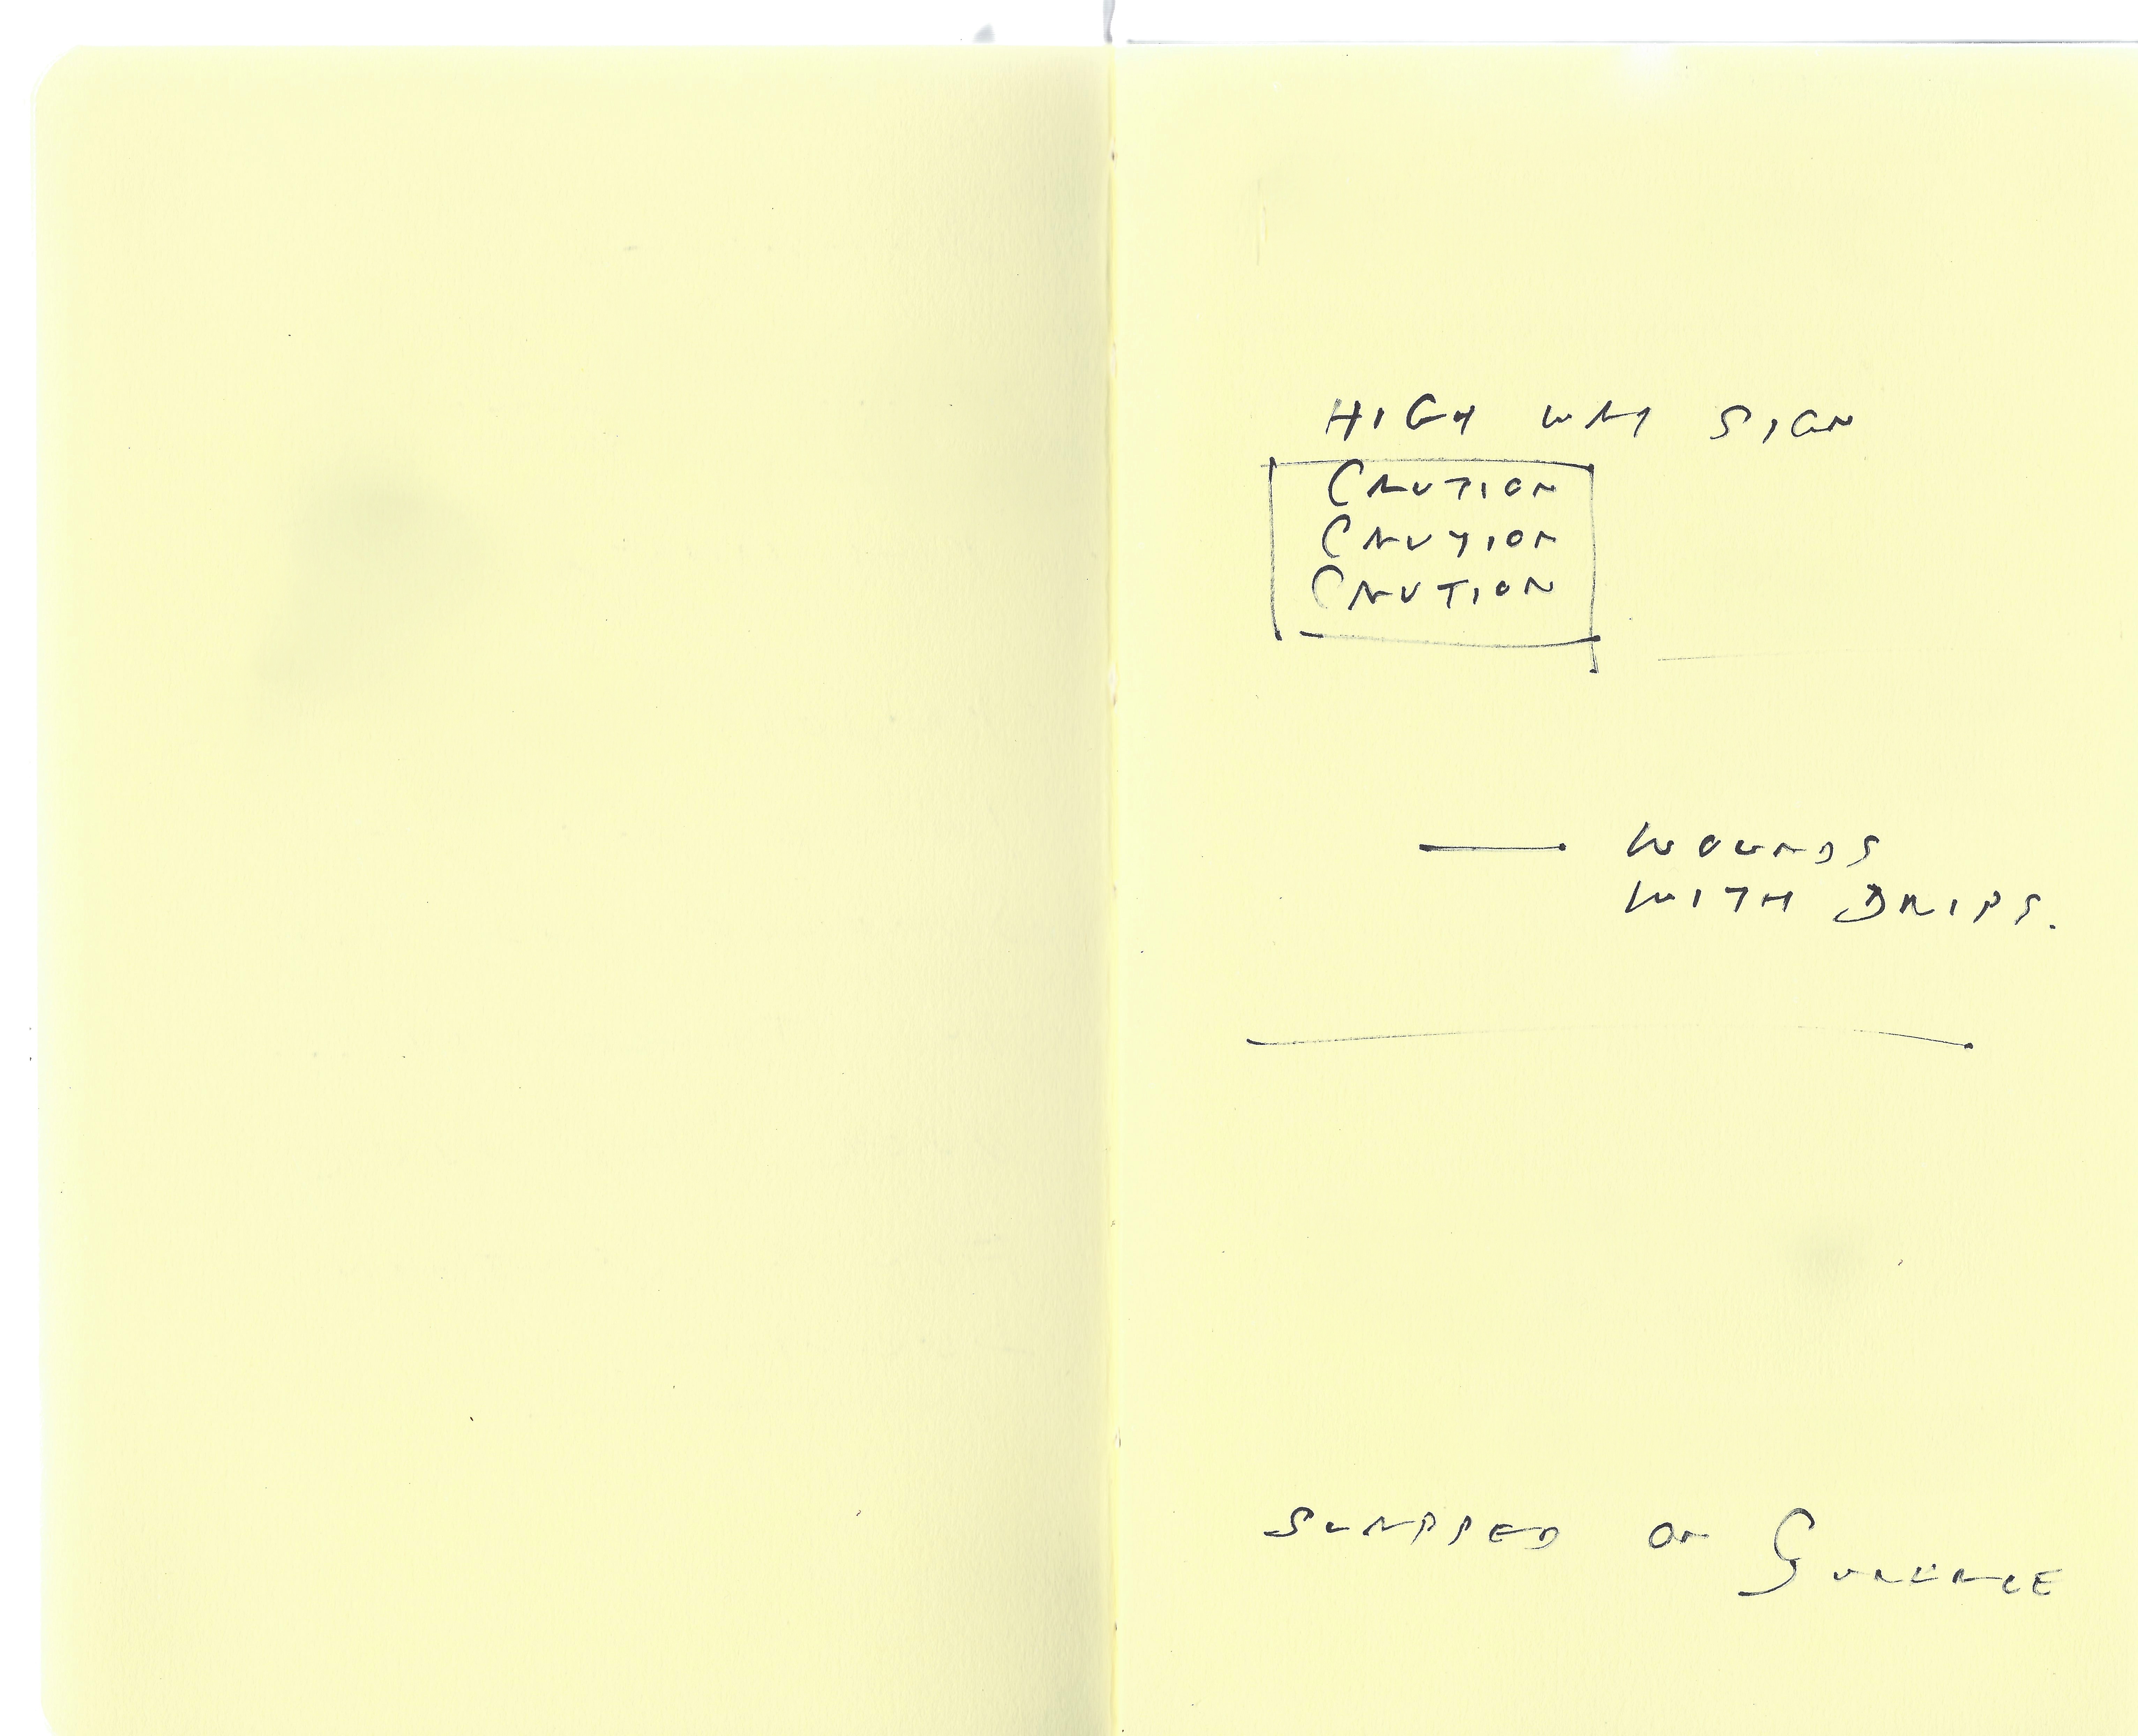 HIGH WAY SIGN
CAUTION
CAUTION
CAUTION
— WOUNDS
WITH DRIPS.
ON SURFACE